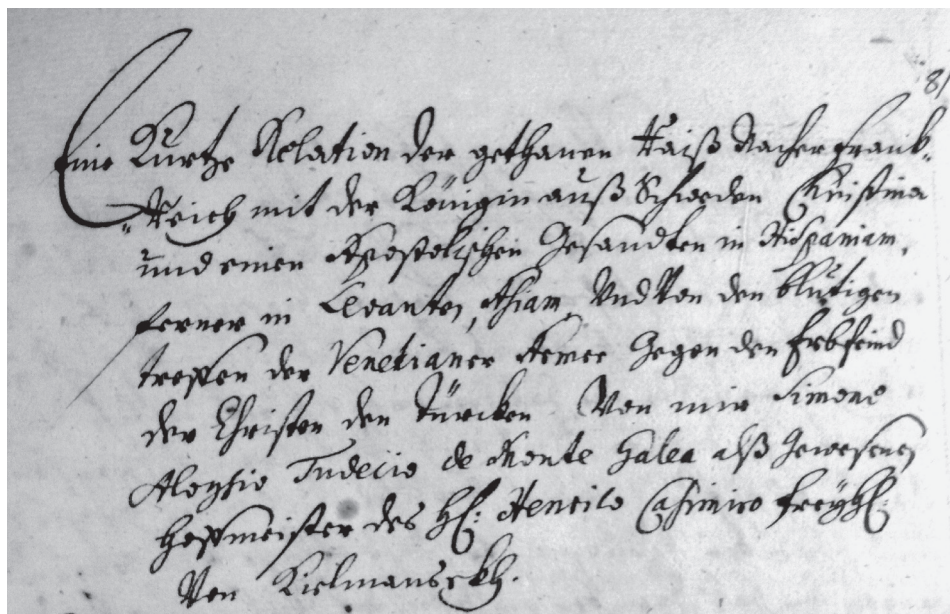 81
Eine Kurtze Relation der gethanen Raiß Nacher Frank-
Reich mit der Königin auß Schweden Christina
und einen Apostolischen Gesandten in Hispaniam,
ferner in Levanten, Asiam, Und Von den blutigen
treffen der Venetianer Armee gegen den Erbfeind
der Christen den Türcken Von mir Simone
Aloysio Tudecio de Monte Galea alß gewesenen
Hoffmeister des H: Casimiro Freyh:
Von Kielmanseckh.